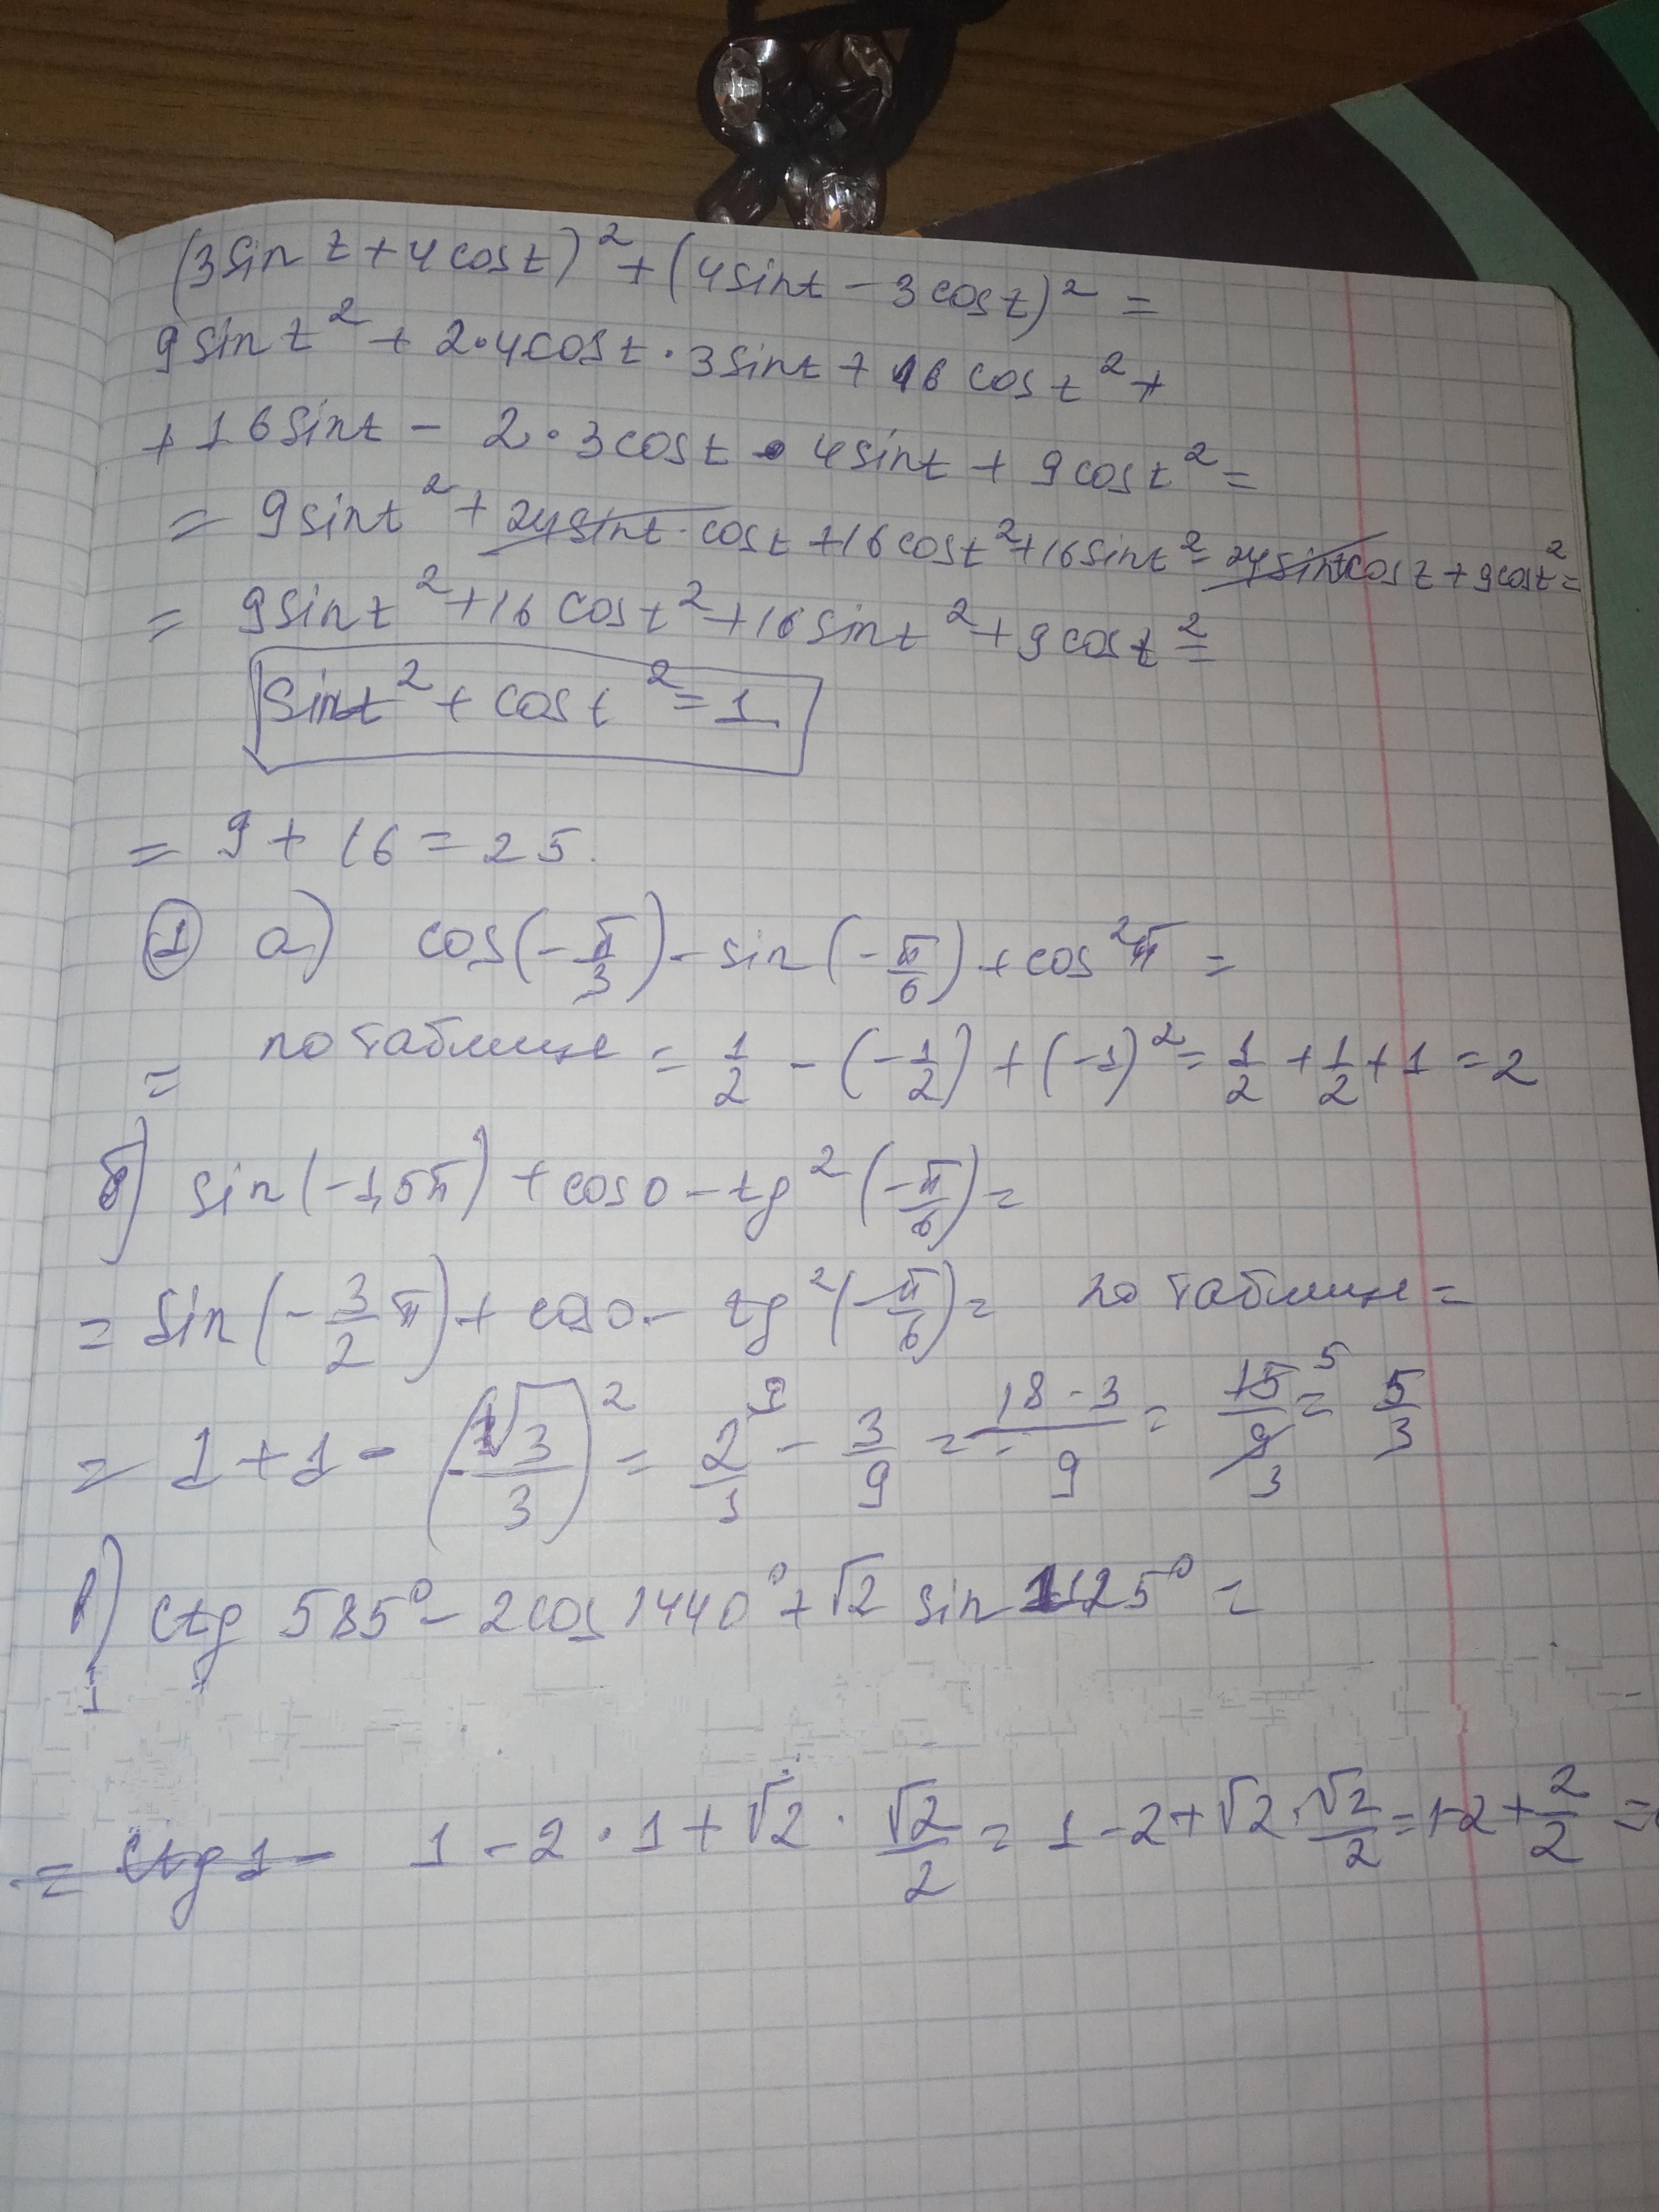 (3sin t + 4cos t)² + (4sin t - 3cos t)² =
9sin t² + 2·4cos t · 3sin t + 16 cos t² +
+ 16sin t - 2·3cos t · 4sin t + 9cos t² =
= 9sin t² + 24sin t · cos t + 16cos t² + 16sin t² - 24sin t cos t + 9cos t² =
= 9sin t² + 16 cos t² + 16 sin t² + 9 cos t² =
sin t² + cos t² = 1
= 9 + 16 = 25.
① а) cos(-π/3) - sin(-π/6) + cos²π =
= по таблице = 1/2 - (-1/2) + (-1)² = 1/2 + 1/2 + 1 = 2
б) sin(-1,5π) + cos 0 - tg²(-π/6) =
= sin(-3/2 π) + cos 0 - tg²(-π/6) = по таблице =
= 1 + 1 - (-√3/3)² = 2/1 ⁹ - 3/9 = (18-3)/9 = 15/9 ⁵ ₃ = 5/3
в) ctg 585° - 2cos 1440° + √2 sin 1125° =
1
= ctg 1 - 1 - 2 · 1 + √2 · √2/2 = 1 - 2 + √2 · √2/2 = 1-2 + 2/2 =